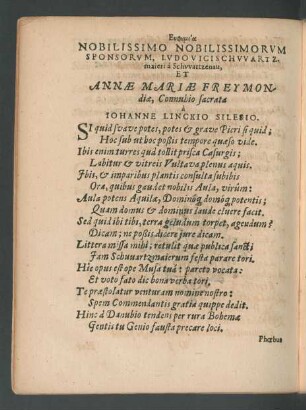 Ευφημία
NOBILISSIMO NOBILISSIMORVM
SPONSORVM, LVDOVICISCHVVARTZ-
maieri à Schvvartzenau,
ET
ANNÆ MARIÆ FREYMON-
diæ, Connubio sacrata
à
IOHANNE LINCKIO SILESIO.
SI quid svave potes, potes & grave Pieri si quid;
Hoc sub ut hoc possis tempore quæso vide.
Ibis enim turres quà tollit prisca Casurgis;
Labitur & vitreis Vultava plenus aquis.
Jbis, & imparibus plantis consulta subibis
Ora, quibus gaudet nobilis Aula, virûm:
Aula potens Aquila, Dominóq; domóq; potentis;
Quam domus & dominus laude cluere facit.
Sed quid ibi tibi, terra gelidum torpet, agendum?
Dicam; ne possis dicere jure dicam.
Littera missa mihi; retulit quæ publica sancti
Jam Schvvartzmaierum festa parare tori.
Hic opus est ope Musa tuâ: pareto vocata:
Et voto fato dic bona verba tori.
Te præstolatur venturam nomine nostro:
Spem Commendantis gratia quippe dedit.
Hinc â Danubio tendens per rura Bohemæ
Gentis tu Genio fausta precare loci.
Phœbus